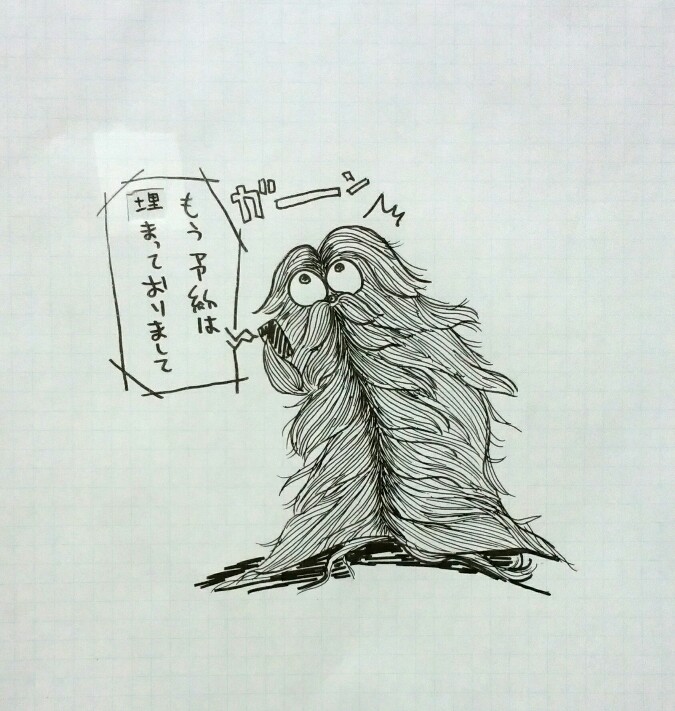 ガーン
もう予約は
埋まっておりまして